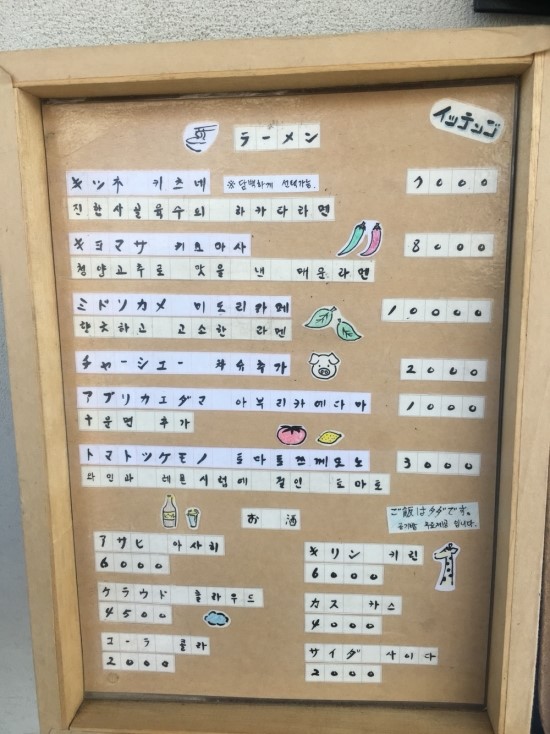 イッテンゴ
ラーメン
キツネ 키츠네 ※담백하게 선택가능. 7000
진한사골육수의 하카다라면
キヨマサ 키요마사 8000
청양고추로 맛을 낸 매운라멘
ミドリカメ 미도리카메 10000
향긋하고 고소한 라멘
チャーシュー 챠슈추가 2000
アブリカエダマ 아부리카에다마 1000
구운면 추가
トマトツケモノ 토마토쯔께모노 3000
와인과 레몬시럽에 절인 토마토
お酒
ご飯はタダです。
공기밥 무료제공 입니다.
アサヒ 아사히
6000
キリン 키린
6000
クラウド 클라우드
4500
カス 카스
4000
コーラ 콜라
2000
サイダ 사이다
2000